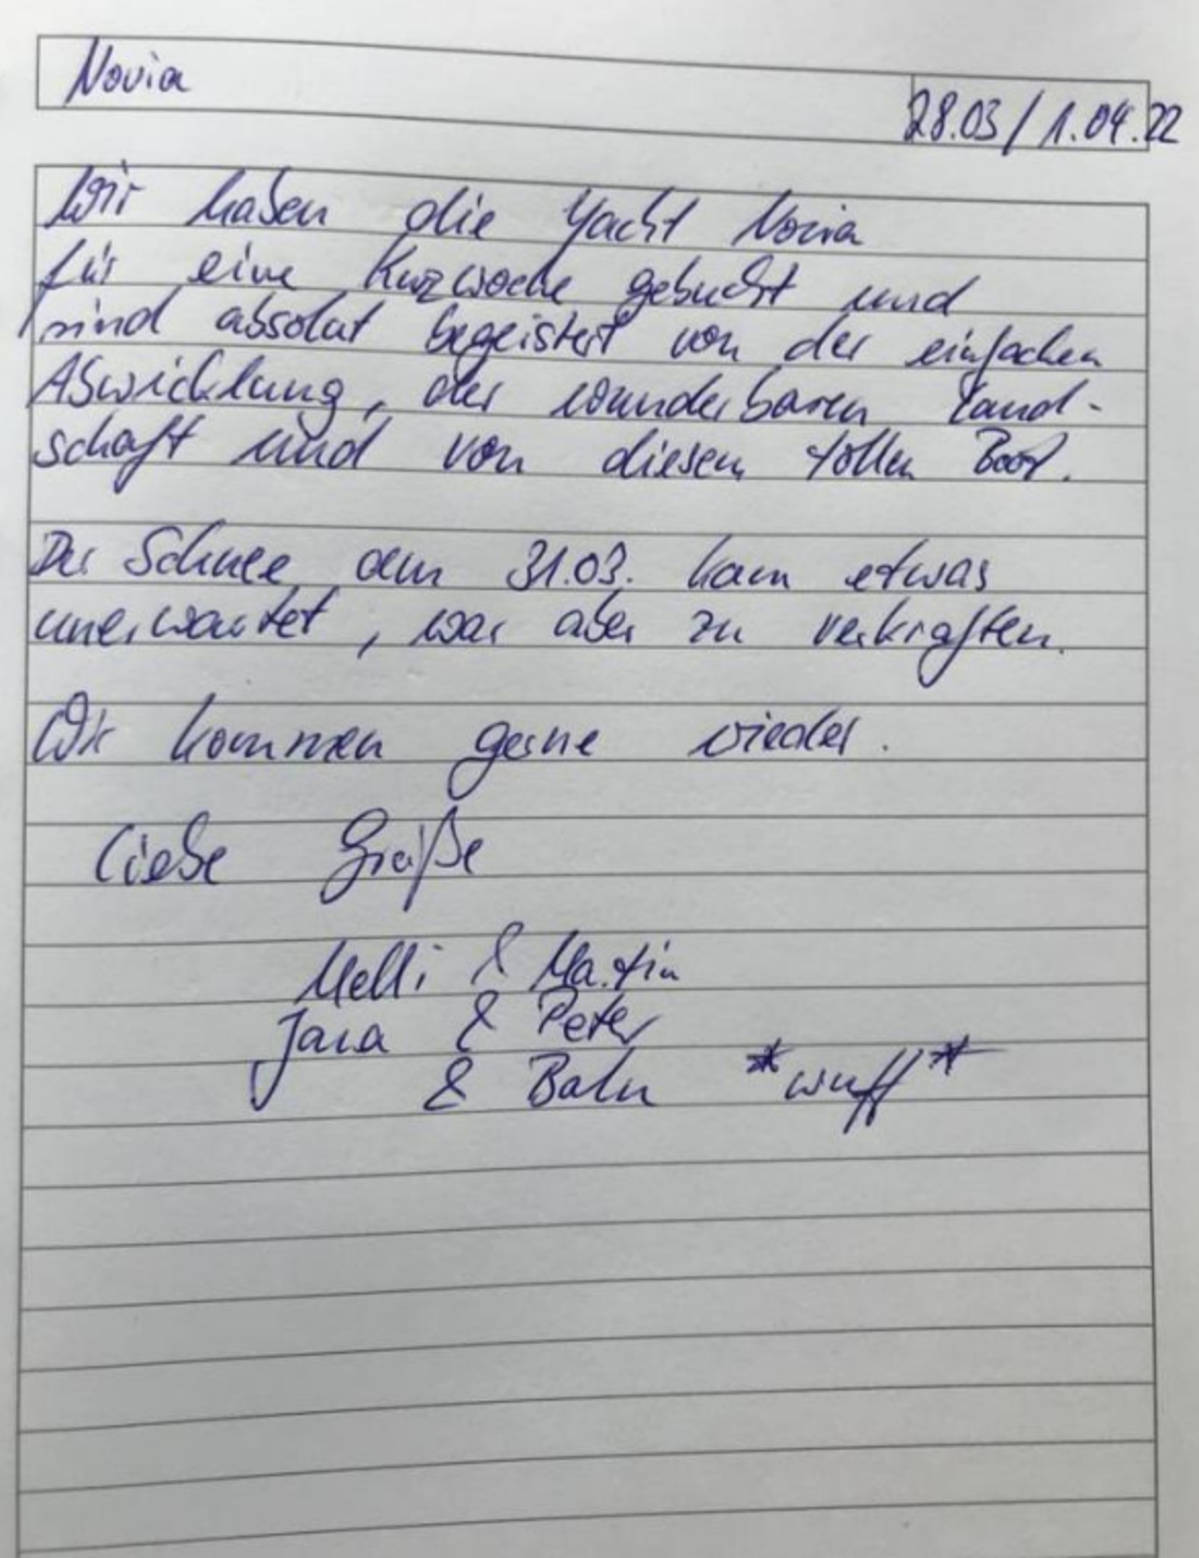 Novia
28.03 / 1.04.22
Wir haben die Yacht Novia
für eine Kurzwoche gebucht und
sind absolut begeistert von der einfachen
Abwicklung, der wunderbaren Land-
schaft und von diesem tollen Boot.
Der Schnee am 31.03. kam etwas
unerwartet, war aber zu verkraften.
Wir kommen gerne wieder.
Liebe Grüße
Melli & Martin
Jana & Peter
& Balu *wuff*